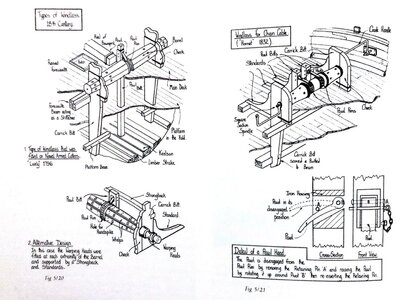 Types of Windlass
18th Century
Pawl Rim
Barrel
Cheek
Carrick Bitt
Pawl Bitt
Main Deck
Carrick Bitt
Platform
in the Hold
Keelson
Limber Strake
Platform Beam
1. Type of Windlass that was
fitted on Naval Armed Cutters.
'Lively' 1796
Strongback
Carrick Bitt
Standard
Pawl Bitt
Pawl Rim
Hole for
Handspike
Whelps
Cheek
Warping
Heads
2. Alternative Design
In this case the Warping Heads were
fitted at each extremity of the Barrel
and supported by a Strongback
and Standards.
Fig 5:20
Windlass for Chain Cable
('Hornet' 1832)
Carrick Bitt
Pawl Bitts
Standards
Cheek
Square
Section
Spindle
Carrick Bitt
scored & Bolted to
a Beam
Iron Housing
Pawl in its
disengaged
position
Pawl
Cross-Section
Front View
Detail of a Pawl Head
The Pawl is disengaged from the
Pawl Rim by removing the Retaining Pin 'A' and raising the Pawl
by rotating it up around Point 'B' then re-inserting the Retaining Pin
Fig 5:21